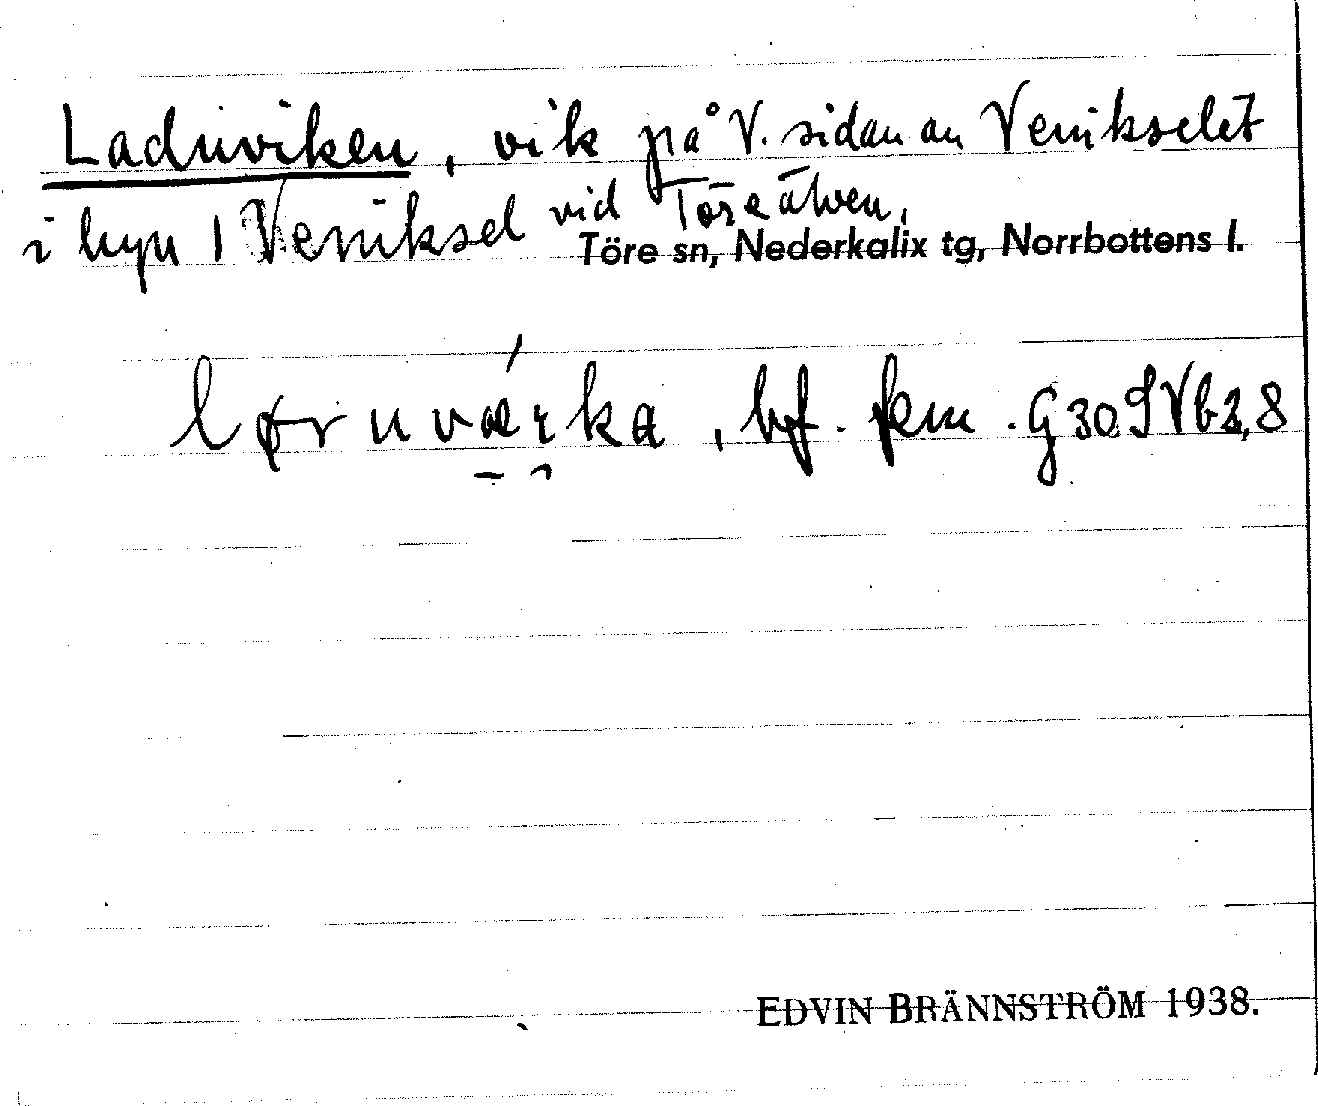 Laduviken, vik på V. sidan av Vernikselet
i byn Verniksel vid Töre älven.
Töre sn, Nederkalix tg, Norrbottens l.
bf. fem.
EDVIN BRÄNNSTRÖM 1938.